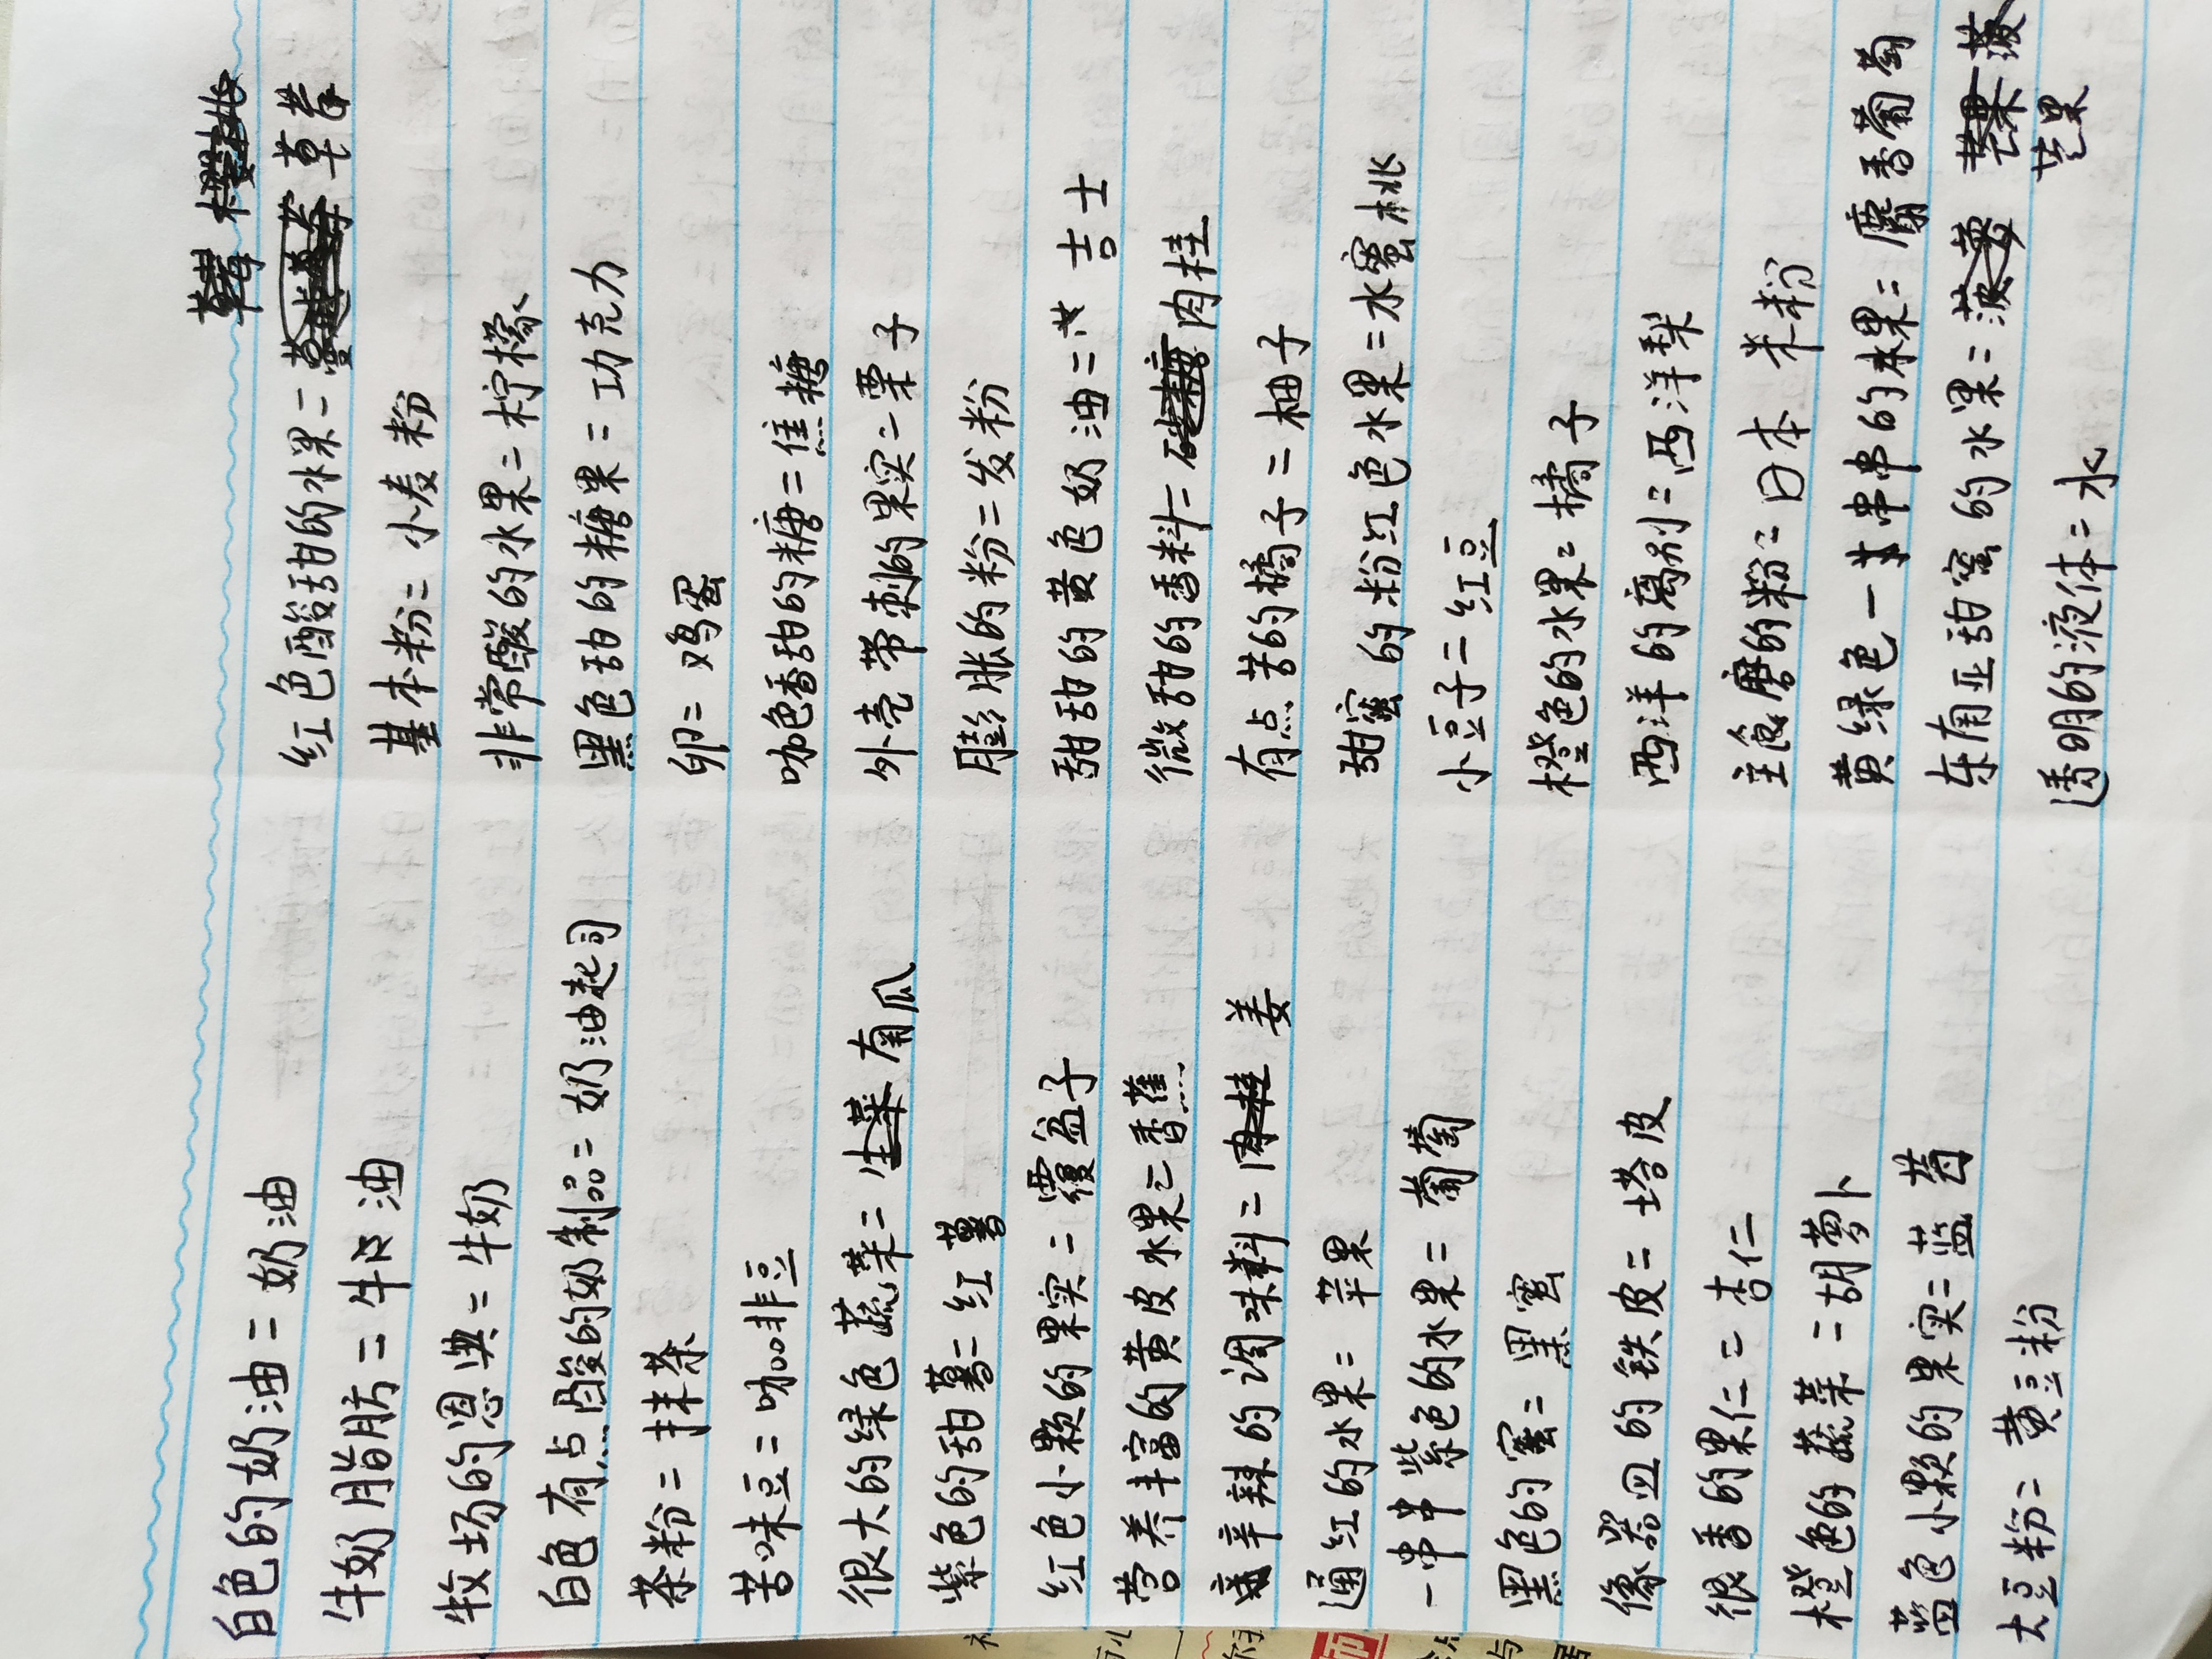 白色的奶油=奶油
牛奶脂肪=牛油
牧场的恩典=牛奶
白色有点酸的奶制品=奶油起司
茶粉=抹茶
苦味豆=咖啡豆
很大的绿色蔬菜=南瓜
紫色的甜薯=红薯
红色小颗的果实=覆盆子
营养丰富的黄皮水果=香蕉
辛辣的调味料=姜
通红的水果=苹果
一串串紫色的水果=葡萄
黑色的蜜=黑蜜
像器皿的铁皮=塔皮
很香的果仁=杏仁
橙色的蔬菜=胡萝卜
蓝色小颗的果实=蓝莓
大豆粉=黄豆粉
红色酸甜的水果=草莓
基本粉=小麦粉
非常酸的水果=柠檬
黑色甜的糖果=功克力
卵=鸡蛋
咖色香甜的糖=焦糖
外壳带刺的果实=栗子
膨胀的粉=发粉
甜甜的黄色奶油=吉士
微甜的香料=肉桂
有点苦的橘子=柚子
甜蜜的粉红色水果=水蜜桃
小豆子=红豆
橙色的水果=橘子
西洋的离别=西洋梨
主食磨的粉=日本米粉
黄绿色一串串的水果=麝香葡萄
东南亚甜蜜的水果=芒果
透明的液体=水